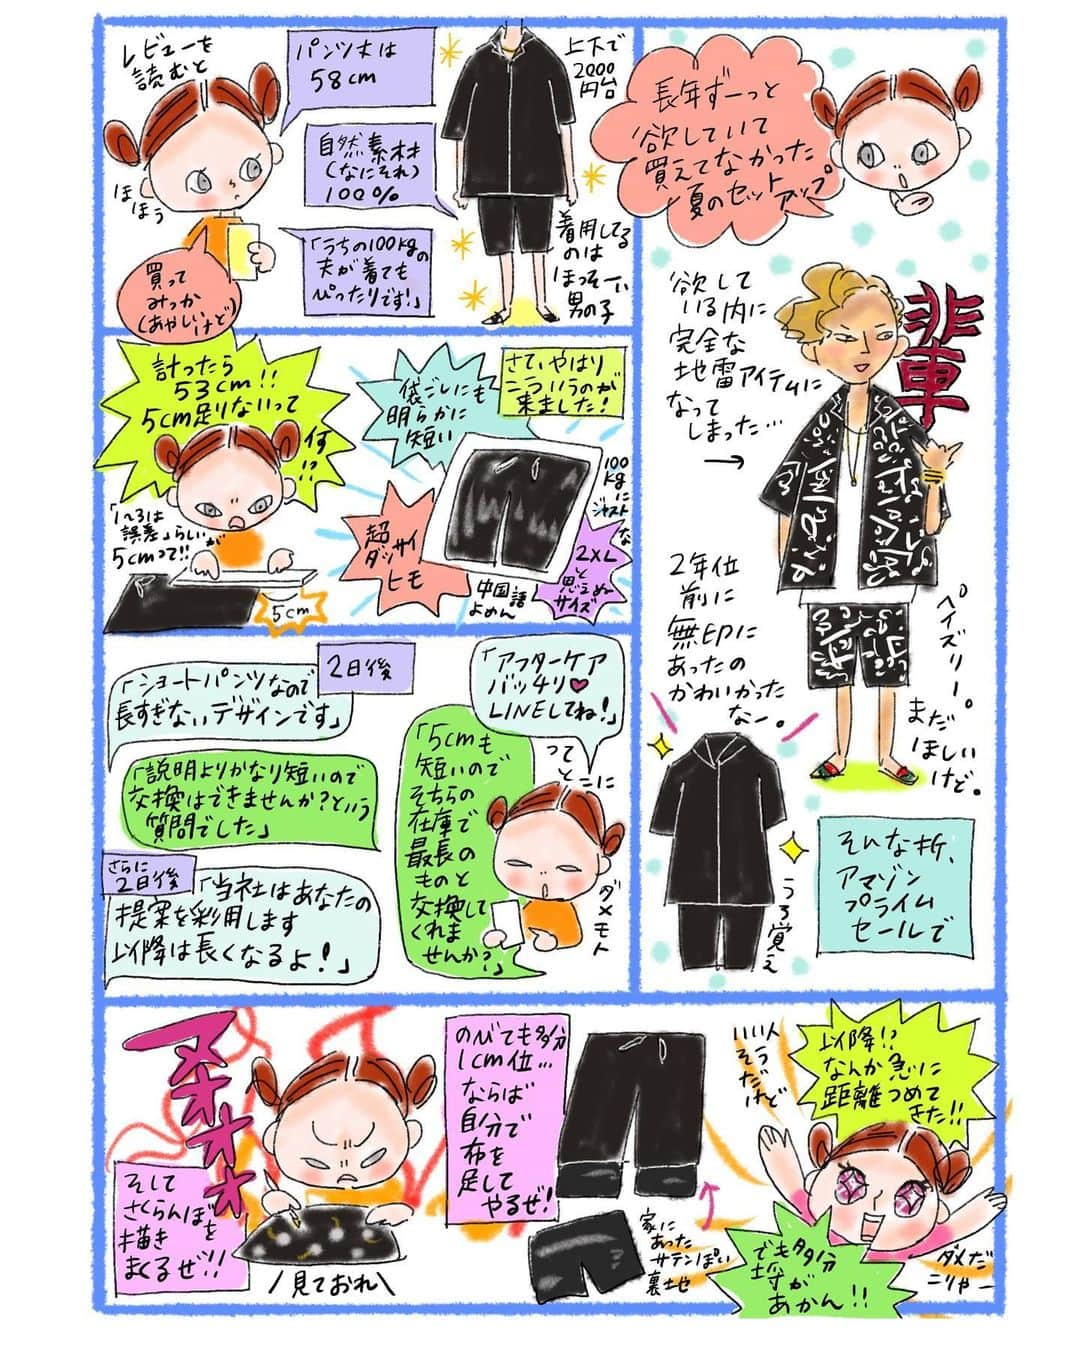 長年ずーっと
欲していて
買えてなかった
夏のセット
アップ
欲して
いる内に
完全な
地雷アイテムに
なって
しまった…
→
輩
ペイズリー。
まだ
ほしい
けど。
2年位
前に
無印に
あったの
かわいかった
なー。
うろ覚え
そんな折、
アマゾン
プライム
セールで
上下で
2000
円台
着用してる
のは
ほっそーい
男の子
レビューを
読むと
パンツ丈は
58cm
自然素材
(なにそれ)
100%
「うちの100kgの
夫が着ても
ぴったりです!」
ほほう
買って
みっか
(あやしいけど)
さて、やはり
こういうのが
来ました!
袋ごしにも
明らかに
短い
100
kgに
ジャストな
2XL
と
思えぬ
サイズ
超
ダッサイ
ヒモ
中国語
よめん
計ったら
53cm!!
5cm足りないって
何!?
「1~3は
誤差」らしいが
5cmって!!
5cm
「アフターケア
バッチリ♥
LINEしてね!」
ってとこに
ダメモト
「5cmも
短いので
そちらの
在庫で
最長の
ものと
交換して
くれま
せんか?」
2日後
「ショートパンツなので
長すぎないデザインです」
「説明よりかなり短いので
交換はできませんか?という
質問でした」
さらに
2日後
「当社はあなたの
提案を採用します
以降は長くなるよ!」
以降!?
なんか急に
距離つめて
きた!!
いい人
そう
だけど
でも多分
埒が
あかん!!
ダメだ
こりゃー
のびても多分
1cm位…
ならば
自分で
布を
足して
やるぜ!
家に
あった
サテンぽい
裏地
ヌオオオオ
そして
さくらんぼを
描き
まくるぜ!!
\見ておれ/